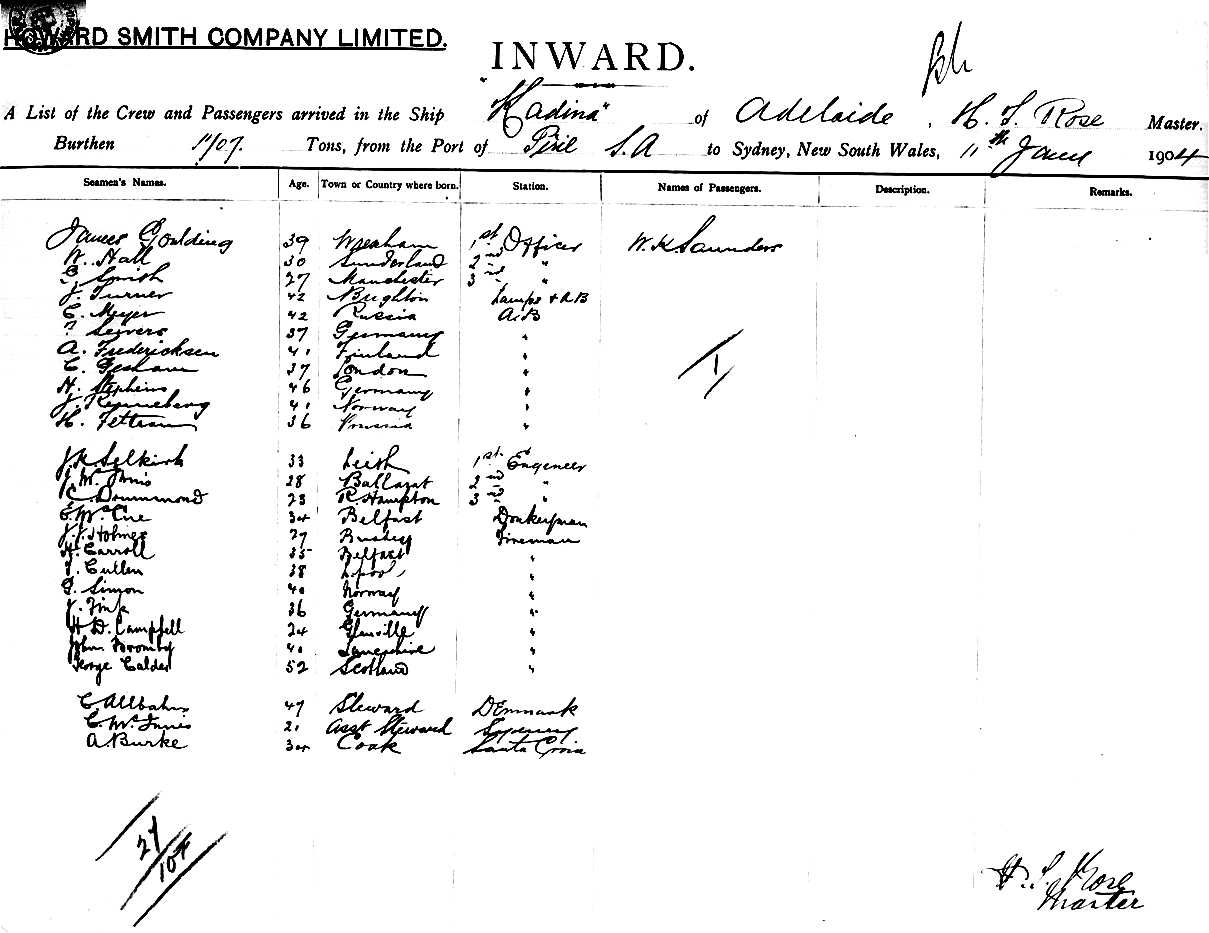 HOWARD SMITH COMPANY LIMITED.
INWARD.
A List of the Crew and Passengers arrived in the Ship "Kadina" of Adelaide, H. S. Rose Master.
Burthen 1107. Tons, from the Port of Pirie S.A to Sydney, New South Wales, 11th Jany 1904
Seamen's Names. Age. Town or Country where born. Station. Names of Passengers. Description. Remarks.
James Goulding 39 Wrexham 1st Officer W. K Saunders
W. Hall 30 Sunderland 2nd "
Smith 27 Manchester 3rd "
J. Turner 42 Brighton Lamps + A B
C. Meyer 42 Russia A.B
? Seivers 37 Germany "
A. Fredericksen 41 Finland "
C. 37 London "
H. Stephens 46 Germany "
J. 41 Norway "
H. 36 "
J. Selkirk 33 Leith 1st Engeneer
J. W. 28 Ballarat 2nd "
C. Drummond 23 R. Hampton 3rd "
E. Mc 34 Belfast Donkeyman
J. J. Holmes 27 Fireman
H. Carroll 35 Belfast "
T. Cullen 38 L.pool "
G. Simon 40 Norway "
J. 36 Germany "
H. D. Campfell 24 Glanville "
John 40 "
George Calder 52 Scotland "
C. 47 Steward Denmark
C. McInnis 21 Asst Steward
A. Burke 34 Cook Santa
1
27
104
H. S. Rose
Master